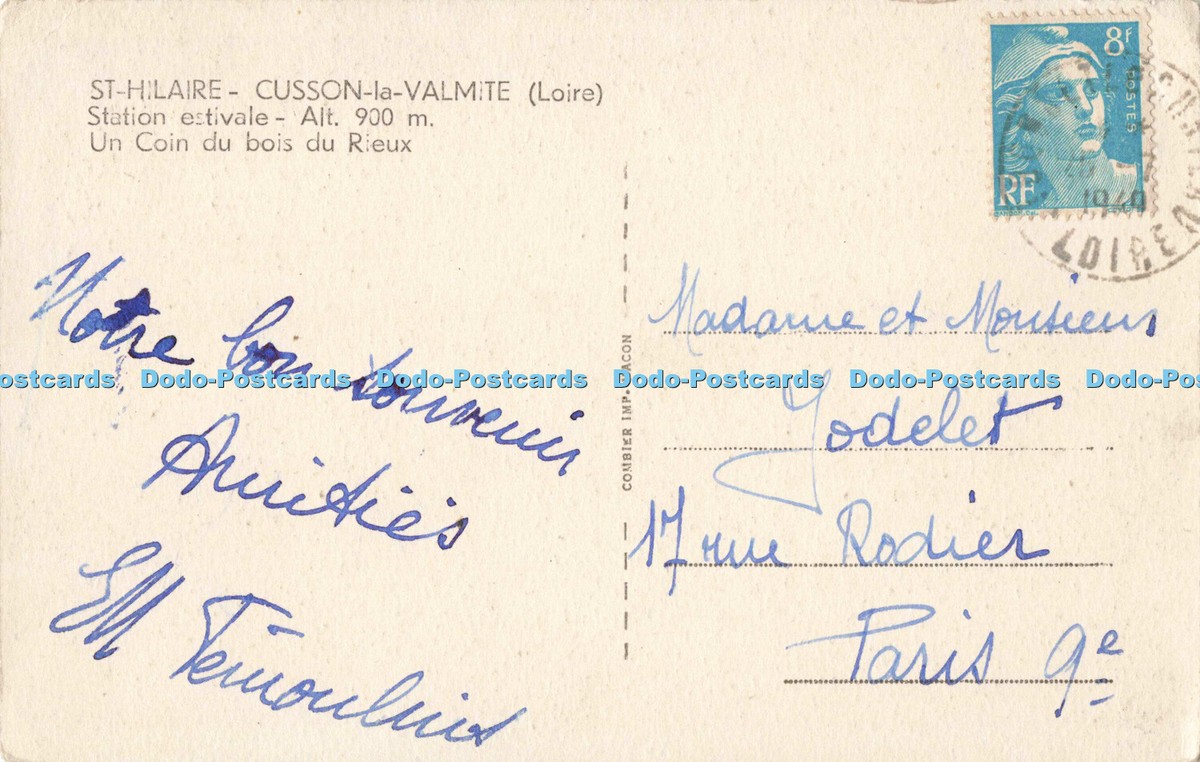 ST-HILAIRE - CUSSON-la-VALMITE (Loire)
Station estivale - Alt. 900 m.
Un Coin du bois du Rieux
Notre bon souvenir
Amitiés
EM
COMBIER IMP. MACON
8F
POSTES
RF
1949
LOIRE
Madame et Monsieur
Jodelet
17 rue Rodier
Paris 9e
Dodo-Postcards Dodo-Postcards Dodo-Postcards Dodo-Postcards Dodo-Postcards